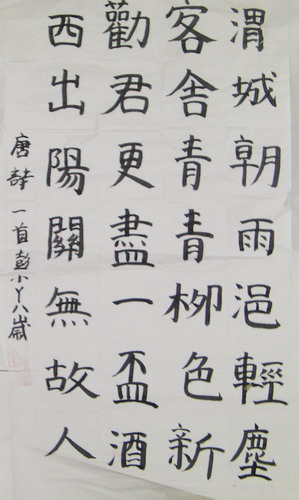 渭城朝雨浥輕塵
客舍青青柳色新
勸君更盡一盃酒
西出陽關無故人
唐詩一首彭小丫八歲